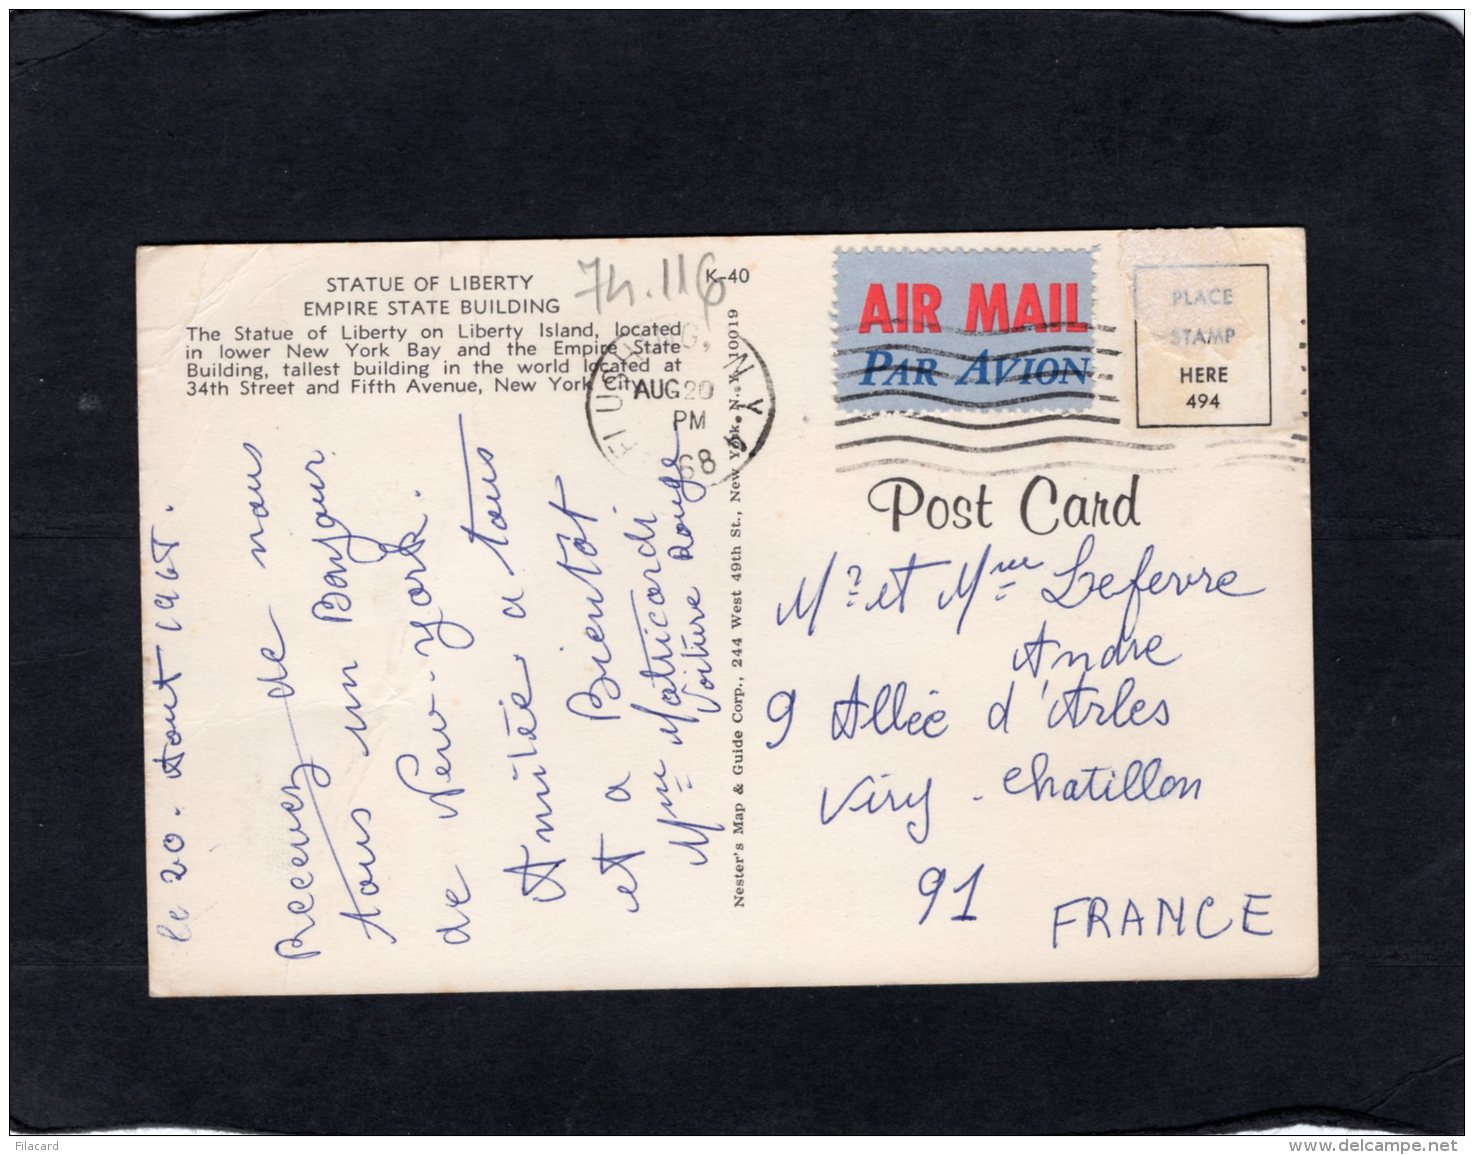 STATUE OF LIBERTY
EMPIRE STATE BUILDING
The Statue of Liberty on Liberty Island, located
in lower New York Bay and the Empire State
Building, tallest building in the world located at
34th Street and Fifth Avenue, New York City.
74.116
K-40
FLUSHING, N.Y.
AUG 20
PM
68
le 20. Aout
Recevez de nous
tous un Bonjour
de New-York.
Amitée a tous
Bientot
et a Matricardi
Mme Voiture Rouge
Nester's Map & Guide Corp., 244 West 49th St., New York, N. Y. 10019
AIR MAIL
PAR AVION
PLACE
STAMP
HERE
494
Post Card
Mr et Mme Lefevre
Andre
9 Allée d'Arles
Viry - chatillon
91
FRANCE
Filacard
www.delcampe.net